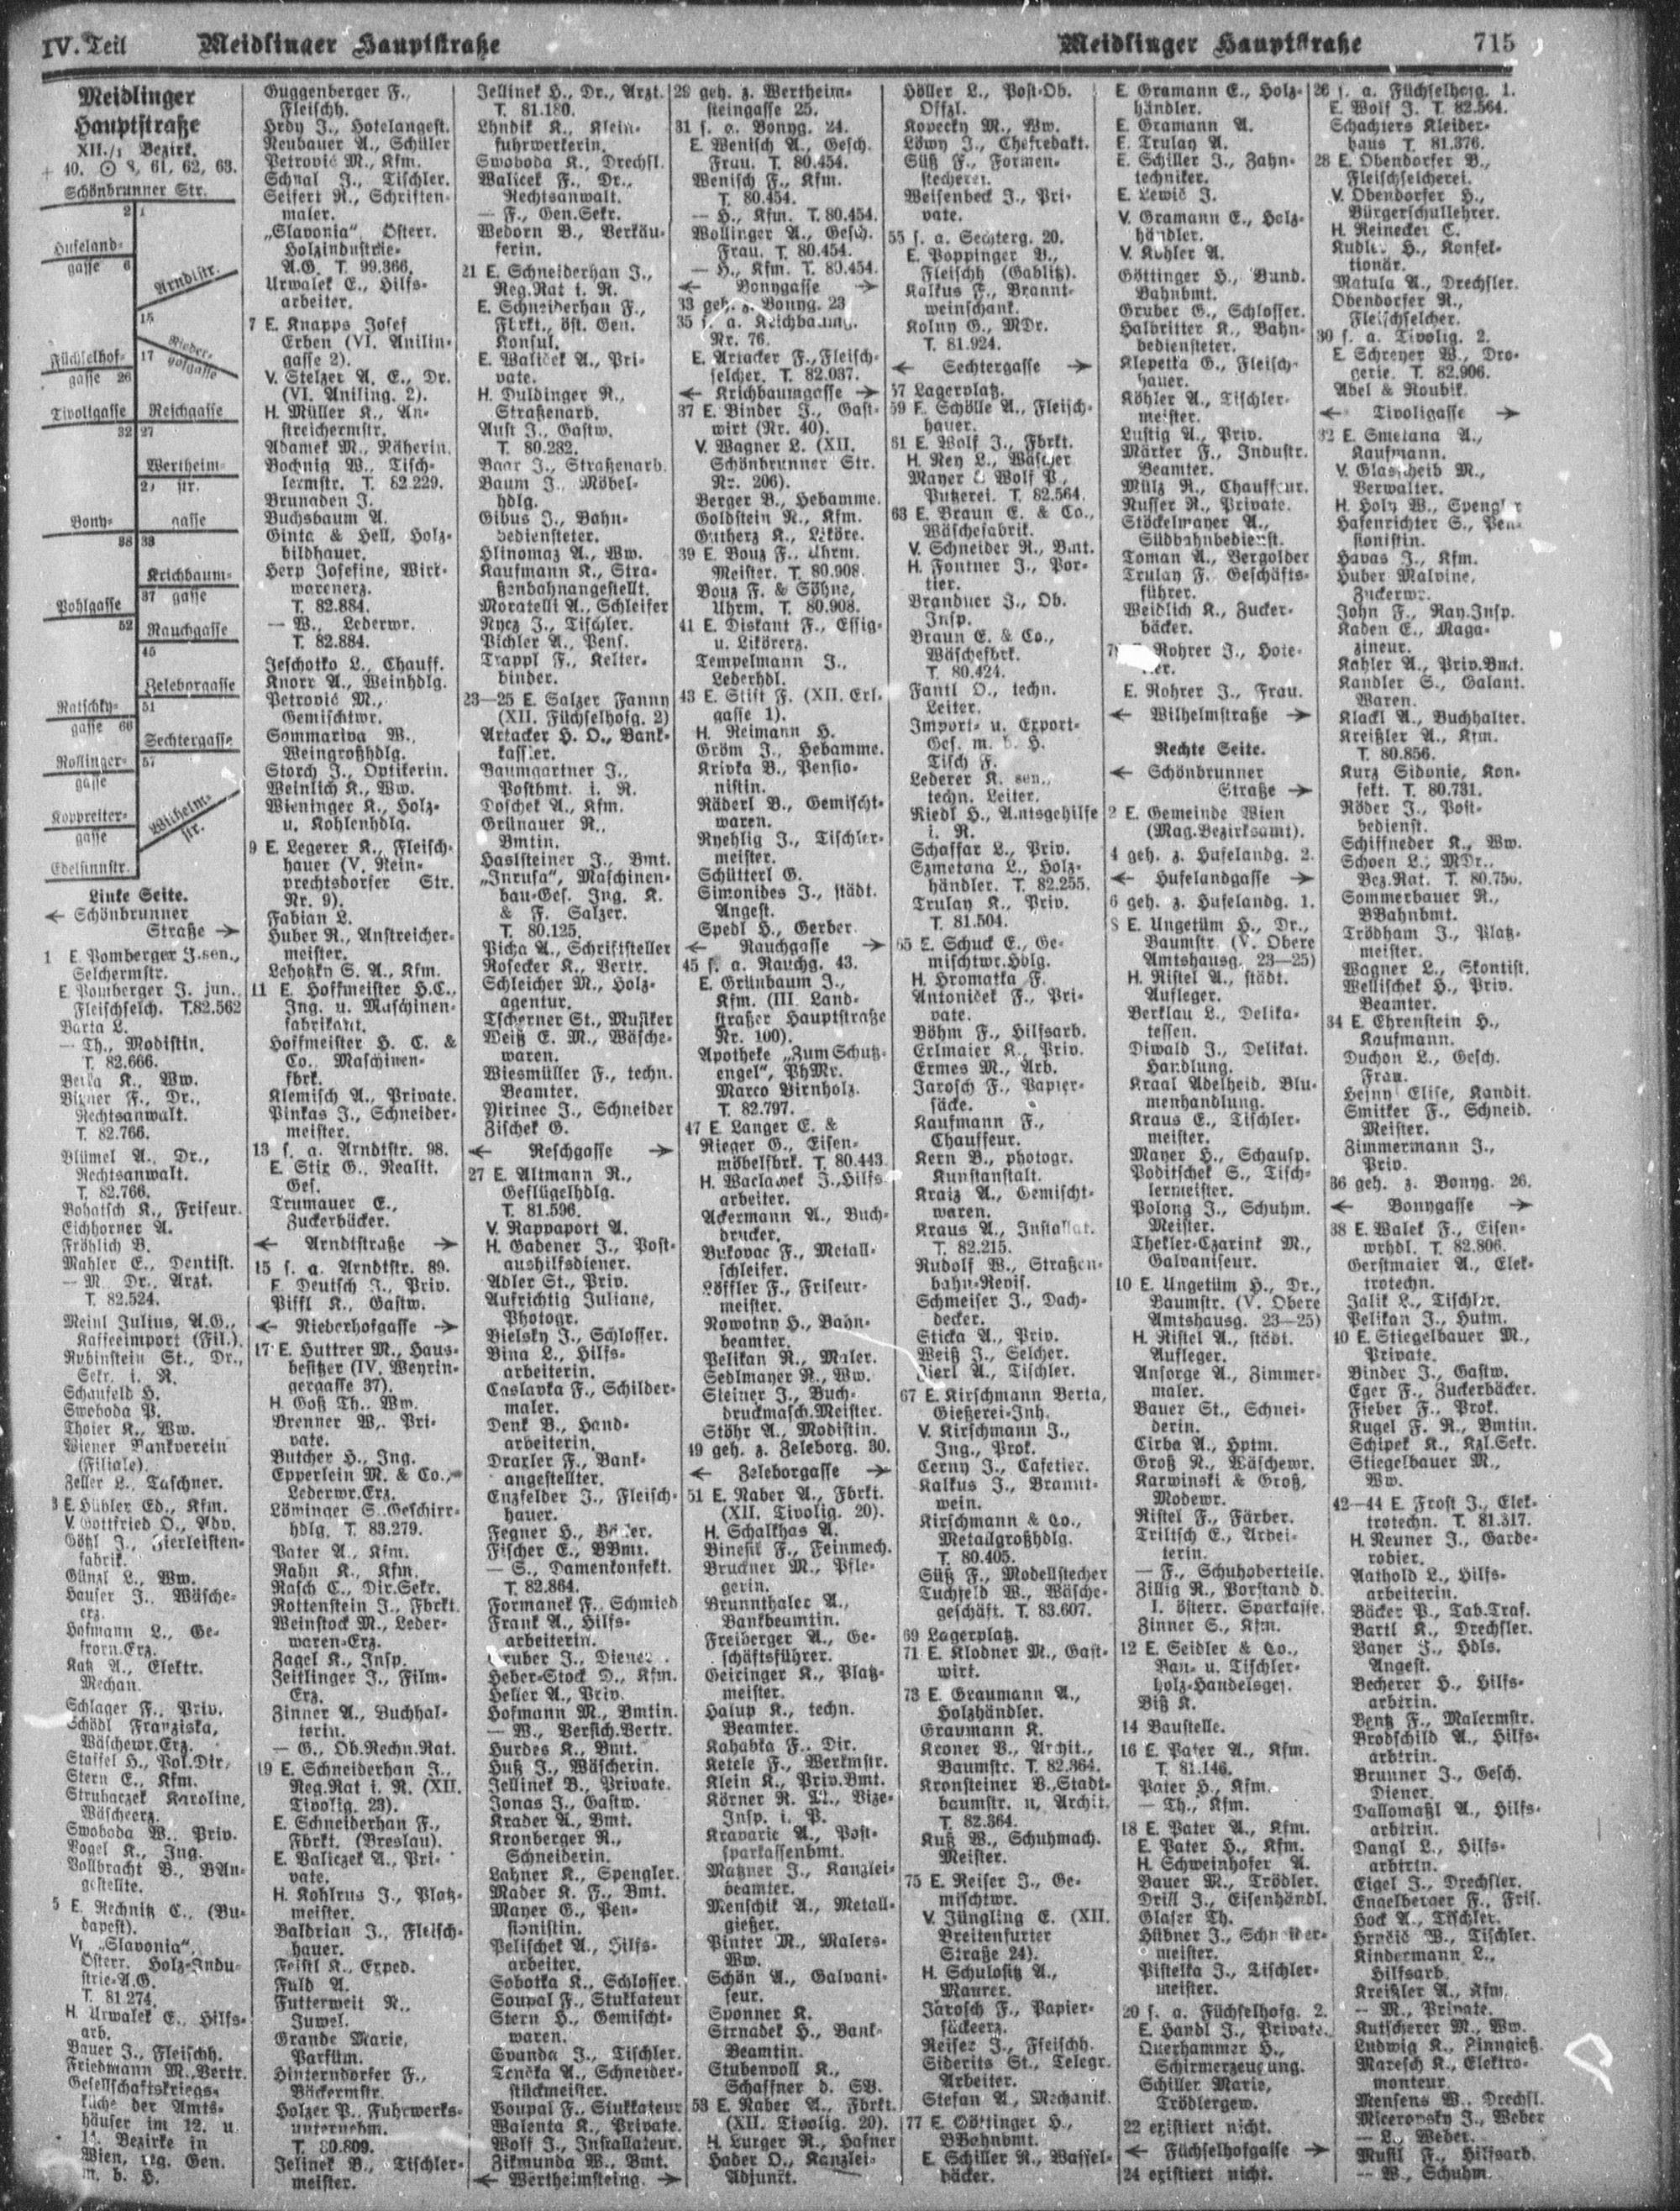 IV. Teil
Meidlinger Hauptstraße
Meidlinger Hauptstraße
715
Meidlinger
Hauptstraße
XII./1 Bezirk.
+ 40. ⊙ 8, 61, 62, 63.
Schönbrunner Str.
2 1
Hufeland-
gasse 6
Arndtstr.
15
Nieder-
hofgasse
Füchselhof-
gasse 26
17
Tivoligasse
Reschgasse
32 27
Wertheim-
str.
Bony-
gasse
38 33
Krichbaum-
37 gasse
Pohlgasse
52
Rauchgasse
45
Zeleborgasse
Ratschky-
51
gasse 66
Sechtergasse
Rollinger-
57
gasse
Koppreiter-
gasse
Wilhelm-
str.
Edelsinnstr.
Linke Seite.
← Schönbrunner
Straße →
1 E. Pomberger J. sen.,
Selchermstr.
E. Pomberger J. jun.,
Fleischselch. T. 82.562
Barta L.
— Th., Modistin.
T. 82.666.
Berka K., Ww.
Bixner F., Dr.,
Rechtsanwalt.
T. 82.766.
Blümel A., Dr.,
Rechtsanwalt.
T. 82.766.
Bohatsch K., Friseur.
Eichhorner A.
Fröhlich B.
Mahler E., Dentist.
— M., Dr., Arzt.
T. 82.524.
Meinl Julius, A.G.,
Kaffeeimport (Fil.).
Rubinstein St., Dr.,
Sekr. i. R.
Schaufeld H.
Swoboda P.
Thoier K., Ww.
Wiener Bankverein
(Filiale).
Zeller L., Taschner.
3 E. Hübler Ed., Kfm.
V. Gottfried O., Adv.
Götzl J., Zierleisten-
fabrik.
Günzl L., Ww.
Hauser J., Wäsche-
erz.
Hofmann L., Ge-
frorn.Erz.
Katz A., Elektr.
Mechan.
Schlager F., Priv.
Schödl Franziska,
Wäschewr.Erz.
Staffel H., Pol.Dir.
Stern E., Kfm.
Struhaczek Karoline,
Wäscheerz.
Swoboda W., Priv.
Vogel K., Ing.
Vollbracht B., BAn-
gestellte.
5 E. Rechnitz C., (Bu-
dapest).
V. „Slavonia“,
Österr. Holz-Indu-
strie-A.G.
T. 81.274.
H. Urwalek E., Hilfs-
arb.
Bauer J., Fleischh.
Friedmann M., Vertr.
Gesellschaftskriegs-
küche der Amts-
häuser im 12. u.
Bezirke in
Wien, reg. Gen.
m. b. H.
Guggenberger F.,
Fleischh.
Hrdy J., Hotelangest.
Neubauer A., Schüler
Petrović M., Kfm.
Schnal J., Tischler.
Seifert R., Schriften-
maler.
„Slavonia“, Österr.
Holzindustrie-
A.G. T. 99.366.
Urwalek E., Hilfs-
arbeiter.
7 E. Knapps Josef
Erben (VI. Anilin-
gasse 2).
V. Stelzer A. E., Dr.
(VI. Aniling. 2).
H. Müller K., An-
streichermstr.
Adamek M., Näherin.
Bochnig W., Tisch-
lermstr. T. 82.229.
Brunaden J.
Buchsbaum A.
Ginta & Hell, Holz-
bildhauer.
Herp Josefine, Wirk-
warenerz.
T. 82.884.
— W., Lederwr.
T. 82.884.
Jeschotko L., Chauff.
Knorr A., Weinhdlg.
Petrović M.,
Gemischtwr.
Sommariva W.,
Weingroßhdlg.
Storch J., Optikerin.
Weinlich K., Ww.
Wieninger K., Holz-
u. Kohlenhdlg.
9 E. Legerer K., Fleisch-
hauer (V. Rein-
prechtsdorfer Str.
Nr. 9).
Fabian L.
Huber R., Anstreicher-
meister.
Lehotzky S. A., Kfm.
11 E. Hoffmeister H.C.,
Ing. u. Maschinen-
fabrikant.
Hoffmeister H. C. &
Co., Maschinen-
fbrk.
Klemisch A., Private.
Pinkas J., Schneider-
meister.
13 s. a. Arndtstr. 98.
E. Stix G., Realit.
Ges.
Trumauer E.,
Zuckerbäcker.
← Arndtstraße →
15 s. a. Arndtstr. 89.
E. Deutsch J., Priv.
Piffl K., Gastw.
← Niederhofgasse →
17 E. Huttrer M., Haus-
besitzer (IV. Weyrin-
gergasse 37).
H. Goß Th., Wm.
Brenner W., Pri-
vate.
Butcher H., Ing.
Epperlein M. & Co.,
Lederwr.Erz.
Löminger S., Geschirr-
hdlg. T. 83.279.
Pater A., Kfm.
Rahn K., Kfm.
Rasch C., Dir.Sekr.
Rottenstein J., Fbrkt.
Weinstock M., Leder-
waren-Erz.
Zagel K., Insp.
Zeitlinger J., Film-
Erz.
Zinner A., Buchhal-
terin.
— G., Ob.Rechn.Rat.
19 E. Schneiderhan J.,
Reg.Rat i. R. (XII.
Tivolig. 23).
E. Schneiderhan F.,
Fbrkt. (Breslau).
E. Valiczek A., Pri-
vate.
H. Kohlrus J., Platz-
meister.
Baldrian J., Fleisch-
hauer.
Feistl K., Exped.
Fuld A.
Futterweit R.,
Juwel.
Grande Marie,
Parfüm.
Hinterndorfer F.,
Bäckermstr.
Holzer P., Fuhrwerks-
unternehm.
T. 80.809.
Jelinek B., Tischler-
meister.
Jellinek H., Dr., Arzt.
T. 81.180.
Lhndik K., Klein-
fuhrwerkerin.
Swoboda K., Drechsl.
Walicek F., Dr.,
Rechtsanwalt.
— F., Gen.Sekr.
Wedorn B., Verkäu-
ferin.
21 E. Schneiderhan J.,
Reg.Rat i. R.
E. Schneiderhan F.,
Fbrkt., öst. Gen.
Konsul.
E. Walicek A., Pri-
vate.
H. Duldinger R.,
Straßenarb.
Aust J., Gastw.
T. 80.282.
Baar J., Straßenarb.
Baum J., Möbel-
hdlg.
Gibus J., Bahn-
bediensteter.
Hlinomaz A., Ww.
Kaufmann K., Stra-
ßenbahnangestellt.
Moratelli A., Schleifer
Nycz J., Tischler.
Pichler A., Pens.
Trappl F., Kelter-
binder.
23—25 E. Salzer Fanny
(XII. Füchselhofg. 2)
Artacker H. O., Bank-
kassier.
Baumgartner J.,
Postbmt. i. R.
Doschek A., Kfm.
Grünauer R.,
Bmtin.
Haslsteiner J., Bmt.
„Inrusa“, Maschinen-
bau-Ges. Ing. K.
& F. Salzer.
T. 80.125.
Picha A., Schriftsteller
Rosecker K., Vertr.
Schleicher M., Holz-
agentur.
Tscherner St., Musiker
Weiß E. M., Wäsche-
waren.
Wiesmüller F., techn.
Beamter.
Zirinec J., Schneider
Zischek G.
← Reschgasse →
27 E. Altmann R.,
Geflügelhdlg.
T. 81.596.
V. Rappaport A.
H. Gadener J., Post-
aushilfsdiener.
Adler St., Priv.
Aufrichtig Juliane,
Photogr.
Bielsky J., Schlosser.
Bina L., Hilfs-
arbeiterin.
Caslavka F., Schilder-
maler.
Denk B., Hand-
arbeiterin.
Draxler F., Bank-
angestellter.
Enzfelder J., Fleisch-
hauer.
Fegner H., Bäcker.
Fischer E., BBmt.
— S., Damenkonfekt.
T. 82.864.
Formanek F., Schmied
Frank A., Hilfs-
arbeiterin.
Gruber J., Diener.
Heber-Stock D., Kfm.
Heller A., Priv.
Hofmann M., Bmtin.
— W., Versich.Vertr.
Hurdes K., Bmt.
Huß J., Wäscherin.
Jellinek B., Private.
Jonas J., Gastw.
Krader A., Bmt.
Kronberger R.,
Schneiderin.
Lahner K., Spengler.
Mader K. F., Bmt.
Mayer G., Pen-
sionistin.
Pelischek A., Hilfs-
arbeiter.
Sobotka K., Schlosser.
Soupal F., Stukkateur
Stern H., Gemischt-
waren.
Svanda J., Tischler.
Tenčka A., Schneider-
stückmeister.
Voupal F., Stukkateur
Walenta K., Private.
Wolf J., Installateur.
Zikmunda W., Bmt.
← Wertheimsteing. →
29 geh. z. Wertheim-
steingasse 25.
31 s. a. Bonyg. 24.
E. Wenisch A., Gesch.
Frau. T. 80.454.
Wenisch F., Kfm.
T. 80.454.
— H., Kfm. T. 80.454.
Wollinger A., Gesch.
Frau. T. 80.454.
— H., Kfm. T. 80.454.
← Bonygasse →
33 geh. z. Bonyg. 23
35 s. a. Krichbaumg.
Nr. 76.
E. Artacker F., Fleisch-
selcher. T. 82.037.
← Krichbaumgasse →
37 E. Binder J., Gast-
wirt (Nr. 40).
V. Wagner L. (XII.
Schönbrunner Str.
Nr. 206).
Berger B., Hebamme.
Goldstein R., Kfm.
Gutherz K., Liköre.
39 E. Bouz F., Uhrm.
Meister. T. 80.908.
Bouz F. & Söhne,
Uhrm. T. 80.908.
41 E. Diskant F., Essig-
u. Likörerz.
Tempelmann J.,
Lederhdl.
43 E. Stift F. (XII. Erl-
gasse 1).
H. Reimann H.
Gröm J., Hebamme.
Krivka B., Pensio-
nistin.
Räderl B., Gemischt-
waren.
Ryehlig J., Tischler-
meister.
Schütterl G.
Simonides J., städt.
Angest.
Spedl H., Gerber.
← Rauchgasse →
45 s. a. Rauchg. 43.
E. Grünbaum J.,
Kfm. (III. Land-
straßer Hauptstraße
Nr. 100).
Apotheke „Zum Schutz-
engel“, PhMr.
Marco Birnholz.
T. 82.797.
47 E. Langer E. &
Rieger G., Eisen-
möbelfbrk. T. 80.443.
H. Waclawek J., Hilfs-
arbeiter.
Ackermann A., Buch-
drucker.
Bukovac F., Metall-
schleifer.
Löffler F., Friseur-
meister.
Nowotny H., Bahn-
beamter.
Pelikan R., Maler.
Sedlmayer R., Ww.
Steiner J., Buch-
druckmasch.Meister.
Stöhr A., Modistin.
49 geh. z. Zeleborg. 30.
← Zeleborgasse →
51 E. Naber A., Fbrkt.
(XII. Tivolig. 20).
H. Schalkhas A.
Binesik F., Feinmech.
Bruckner M., Pfle-
gerin.
Brunnthaler A.,
Bankbeamtin.
Freiberger A., Ge-
schäftsführer.
Geiringer K., Platz-
meister.
Halup K., techn.
Beamter.
Kahabka F., Dir.
Ketele F., Werkmstr.
Klein K., Priv.Bmt.
Körner R. Th., Vize-
Insp. i. P.
Kravaric A., Post-
sparkassenbmt.
Matzner J., Kanzlei-
beamter.
Menschik A., Metall-
gießer.
Pinter M., Malers-
Ww.
Schön A., Galvani-
seur.
Sponner K.
Strnadek H., Bank-
Beamtin.
Stubenvoll K.,
Schaffner d. SB.
53 E. Naber A., Fbrkt.
(XII. Tivolig. 20).
H. Lurger R., Hafner
Hader O., Kanzlei-
Adjunct.
Höller L., Post-Ob.
Offzl.
Kovecky M., Ww.
Löwy J., Chefredakt.
Süß F., Formen-
stecherei.
Weisenbeck J., Pri-
vate.
55 s. a. Sechterg. 20.
E. Poppinger V.,
Fleischh (Gablitz).
Kalkus F., Brannt-
weinschank.
Kolny G., MDr.
T. 81.924.
← Sechtergasse →
57 Lagerplatz.
59 E. Schölle A., Fleisch-
hauer.
61 E. Wolf J., Fbrkt.
H. Ney L., Wäscher
Mayer & Wolf P.,
Putzerei. T. 82.564.
63 E. Braun E. & Co.,
Wäschefabrik.
V. Schneider R., Bmt.
H. Fontner J., Por-
tier.
Brandner J., Ob.
Insp.
Braun E. & Co.,
Wäschefbrk.
T. 80.424.
Fantl O., techn.
Leiter.
Import- u. Export-
Ges. m. b. H.
Tisch F.
Lederer K. sen.,
techn. Leiter.
Riedl H., Amtsgehilfe
i. R.
Schaffar L., Priv.
Szmetana L., Holz-
händler. T. 82.255.
Trulay K., Priv.
T. 81.504.
65 E. Schuck E., Ge-
mischtwr.Hdlg.
H. Hromatka F.
Antoniček F., Pri-
vate.
Böhm F., Hilfsarb.
Erlmaier K., Priv.
Ermes M., Arb.
Jarosch F., Papier-
säcke.
Kaufmann F.,
Chauffeur.
Kern B., photogr.
Kunstanstalt.
Kraiz A., Gemischt-
waren.
Kraus A., Installat.
T. 82.215.
Rudolf W., Straßen-
bahn-Revis.
Schmeiser J., Dach-
decker.
Sticka A., Priv.
Weiß J., Selcher.
Zierl A., Tischler.
67 E. Kirschmann Berta,
Gießerei-Inh.
V. Kirschmann J.,
Ing., Prok.
Cerny J., Cafetier.
Kalkus J., Brannt-
wein.
Kirschmann & Co.,
Metallgroßhdlg.
T. 80.405.
Süß F., Modellstecher
Tuchfeld W., Wäsche-
geschäft. T. 83.607.
69 Lagerplatz.
71 E. Klodner M., Gast-
wirt.
73 E. Graumann A.,
Holzhändler.
Graumann K.
Kroner V., Archit.,
Baumstr. T. 82.364.
Kronsteiner V., Stadt-
baumstr. u. Archit.
T. 82.364.
Kuß W., Schuhmach.
Meister.
75 E. Reiser J., Ge-
mischtwr.
V. Jüngling E. (XII.
Breitenfurter
Straße 24).
H. Schulositz A.,
Maurer.
Jarosch F., Papier-
säckeerz.
Reiser J., Fleischh.
Siderits St., Telegr.
Arbeiter.
Stefan A., Mechanik.
77 E. Göttinger H.,
BBahnbmt.
E. Schiller R., Waffel-
bäcker.
E. Gramann E., Holz-
händler.
E. Gramann A.
E. Trulay A.
E. Schiller J., Zahn-
techniker.
E. Lewič J.
V. Gramann E., Holz-
händler.
V. Kohler A.
Göttinger H., Bund.
Bahnbmt.
Gruber G., Schlosser.
Halbritter K., Bahn-
bediensteter.
Klepetta G., Fleisch-
hauer.
Köhler A., Tischler-
meister.
Lustig A., Priv.
Märker F., Industr.
Beamter.
Mülz R., Chauffeur.
Nusser R., Private.
Stöckelmayer A.,
Südbahnbedienst.
Toman A., Vergolder
Trulay F., Geschäfts-
führer.
Weidlich K., Zucker-
bäcker.
Rohrer J., Hote-
E. Rohrer J., Frau.
← Wilhelmstraße →
Rechte Seite.
← Schönbrunner
Straße →
2 E. Gemeinde Wien
(Mag.Bezirksamt).
4 geh. z. Hufelandg. 2.
← Hufelandgasse →
6 geh. z. Hufelandg. 1.
8 E. Ungetüm H., Dr.,
Baumstr. (V. Obere
Amtshausg. 23—25)
H. Ristel A., städt.
Aufleger.
Berklau L., Delika-
tessen.
Diwald J., Delikat.
Handlung.
Kraal Adelheid, Blu-
menhandlung.
Kraus E., Tischler-
meister.
Mayer H., Schausp.
Poditschek S., Tisch-
lermeister.
Polong J., Schuhm.
Meister.
Thekler-Czarink M.,
Galvaniseur.
10 E. Ungetüm H., Dr.,
Baumstr. (V. Obere
Amtshausg. 23—25)
H. Ristel A., städt.
Aufleger.
Ansorge A., Zimmer-
maler.
Bauer St., Schnei-
derin.
Cirba A., Hptm.
Groß R., Wäschewr.
Karwinski & Groß,
Modewr.
Ristel F., Färber.
Triltsch E., Arbei-
terin.
— F., Schuhoberteile.
Zillig R., Vorstand d.
I. österr. Sparkasse.
Zinner S., Kfm.
12 E. Seidler & Co.,
Bau- u. Tischler-
holz-Handelsges.
Biß K.
14 Baustelle.
16 E. Pater A., Kfm.
T. 81.146.
Pater H., Kfm.
— Th., Kfm.
18 E. Pater A., Kfm.
E. Pater H., Kfm.
H. Schweinhofer A.
Bauer M., Trödler.
Drill J., Eisenhändl.
Glaser Th.
Hübner J., Schneider-
meister.
Pistelka J., Tischler-
meister.
20 s. a. Füchselhofg. 2.
E. Handl J., Private.
Querhammer H.,
Schirmerzeugung.
Schiller Marie,
Trödlergew.
22 existiert nicht.
← Füchselhofgasse →
24 existiert nicht.
26 s. a. Füchselhofg. 1.
E. Wolf J. T. 82.564.
Schachters Kleider-
haus T. 81.376.
28 E. Obendorfer B.,
Fleischselcherei.
V. Obendorfer H.,
Bürgerschullehrer.
H. Reinecker C.
Kudler H., Konfek-
tionär.
Matula A., Drechsler.
Obendorfer R.,
Fleischselcher.
30 s. a. Tivolig. 2.
E. Schreyer W., Dro-
gerie. T. 82.906.
Abel & Roubik.
← Tivoligasse →
32 E. Smetana A.,
Kaufmann.
V. Glasscheib M.,
Verwalter.
H. Holy W., Spengler
Hafenrichter S., Pen-
sionistin.
Havas J., Kfm.
Huber Malvine,
Zuckerwr.
John F., Ray.Insp.
Kaden E., Maga-
zineur.
Kahler A., Priv.Bmt.
Kandler S., Galant.
Waren.
Klackl A., Buchhalter.
Kreißler A., Kfm.
T. 80.856.
Kurz Sidonie, Kon-
fekt. T. 80.731.
Röder J., Post-
bedienst.
Schiffneder K., Ww.
Schoen L., MDr.,
Bez.Rat. T. 80.750.
Sommerbauer R.,
BBahnbmt.
Trödham J., Platz-
meister.
Wagner L., Skontist.
Wellischek H., Priv.
Beamter.
34 E. Ehrenstein H.,
Kaufmann.
Duchon L., Gesch.
Frau.
Hejny Elise, Kandit.
Smitker F., Schneid.
Meister.
Zimmermann J.,
Priv.
36 geh. z. Bonyg. 26.
← Bonygasse →
38 E. Walek F., Eisen-
wrhdl. T. 82.806.
Gerstmaier A., Elek-
trotechn.
Jalik L., Tischler.
Pelikan J., Hutm.
40 E. Stiegelbauer M.,
Private.
Binder J., Gastw.
Eger F., Zuckerbäcker.
Fieber F., Prok.
Kugel F. R., Bmtin.
Schipek K., Kzl.Sekr.
Stiegelbauer M.,
Ww.
42—44 E. Frost J., Elek-
trotechn. T. 81.317.
H. Neuner J., Garde-
robier.
Aathold L., Hilfs-
arbeiterin.
Bäcker P., Tab.Traf.
Bartl K., Drechsler.
Bayer J., Hdls.
Angest.
Becherer H., Hilfs-
arbtrin.
Bentz F., Malermstr.
Brodschild A., Hilfs-
arbtrin.
Brunner J., Gesch.
Diener.
Dallomaßl A., Hilfs-
arbtrin.
Dangl L., Hilfs-
arbtrtn.
Eigel J., Drechsler.
Engelberger F., Fris.
Hock A., Tischler.
Hrnčič W., Tischler.
Kindermann L.,
Hilfsarb.
Kreißler A., Kfm.
— M., Private.
Kutscherer M., Ww.
Ludwig K., Zinngieß.
Maresch K., Elektro-
monteur.
Mensens W., Drechsl.
Miceronsky J., Weber
— L., Weber.
Musil F., Hilfsarb.
— W., Schuhm.